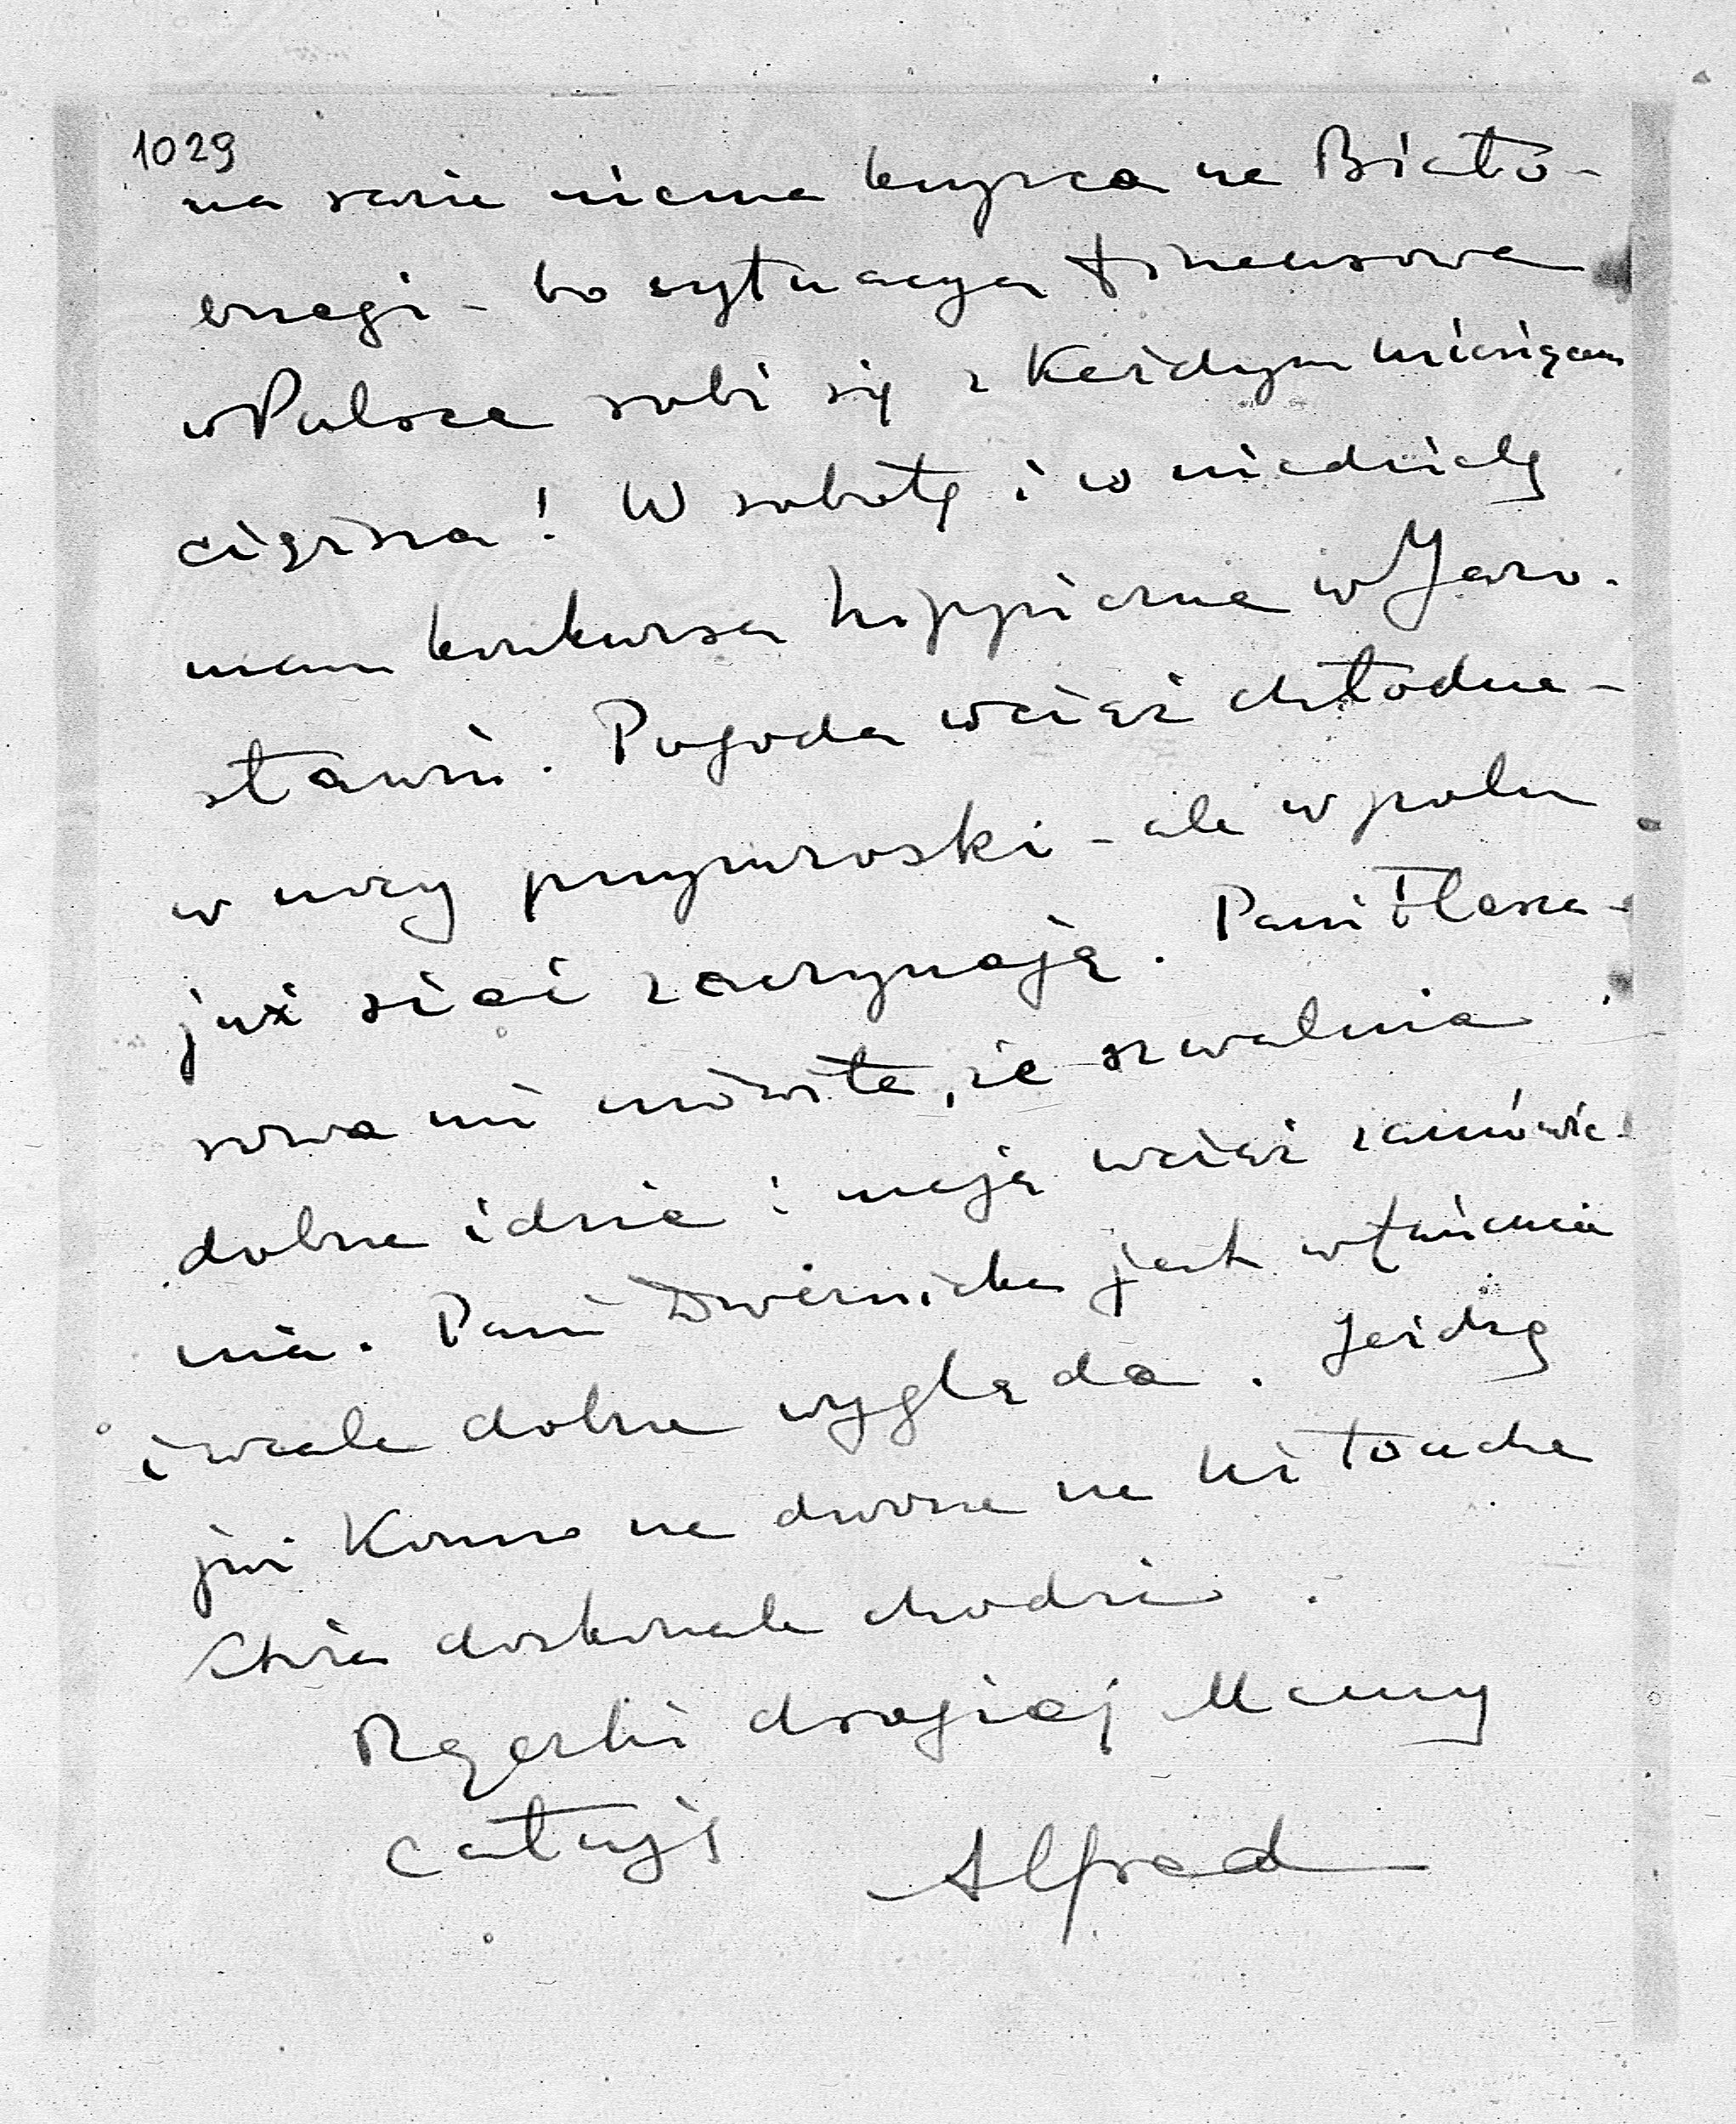 1029
na razie niema kupca na Biało-
brzegi - bo sytuacya finansowa
w Polsce robi się z każdym miesiącem
cięższa! W sobotę i w niedzielę
mam konkursa hippiczne w Jaro-
sławiu. Pogoda wciąż chłodna -
w nocy przymrozki - ale w polu
już siać zaczynają. Pani
mi mówiła, że szwalnia
dobrze idzie i mają wciąż zamówie-
nia. Pani Dwernicka jest w Łańcucie
i wcale dobrze wygląda. Jeżdżę
już konno na dworze na
doskonale chodzi.
Rączki drogiej Mamy
całuję Alfred